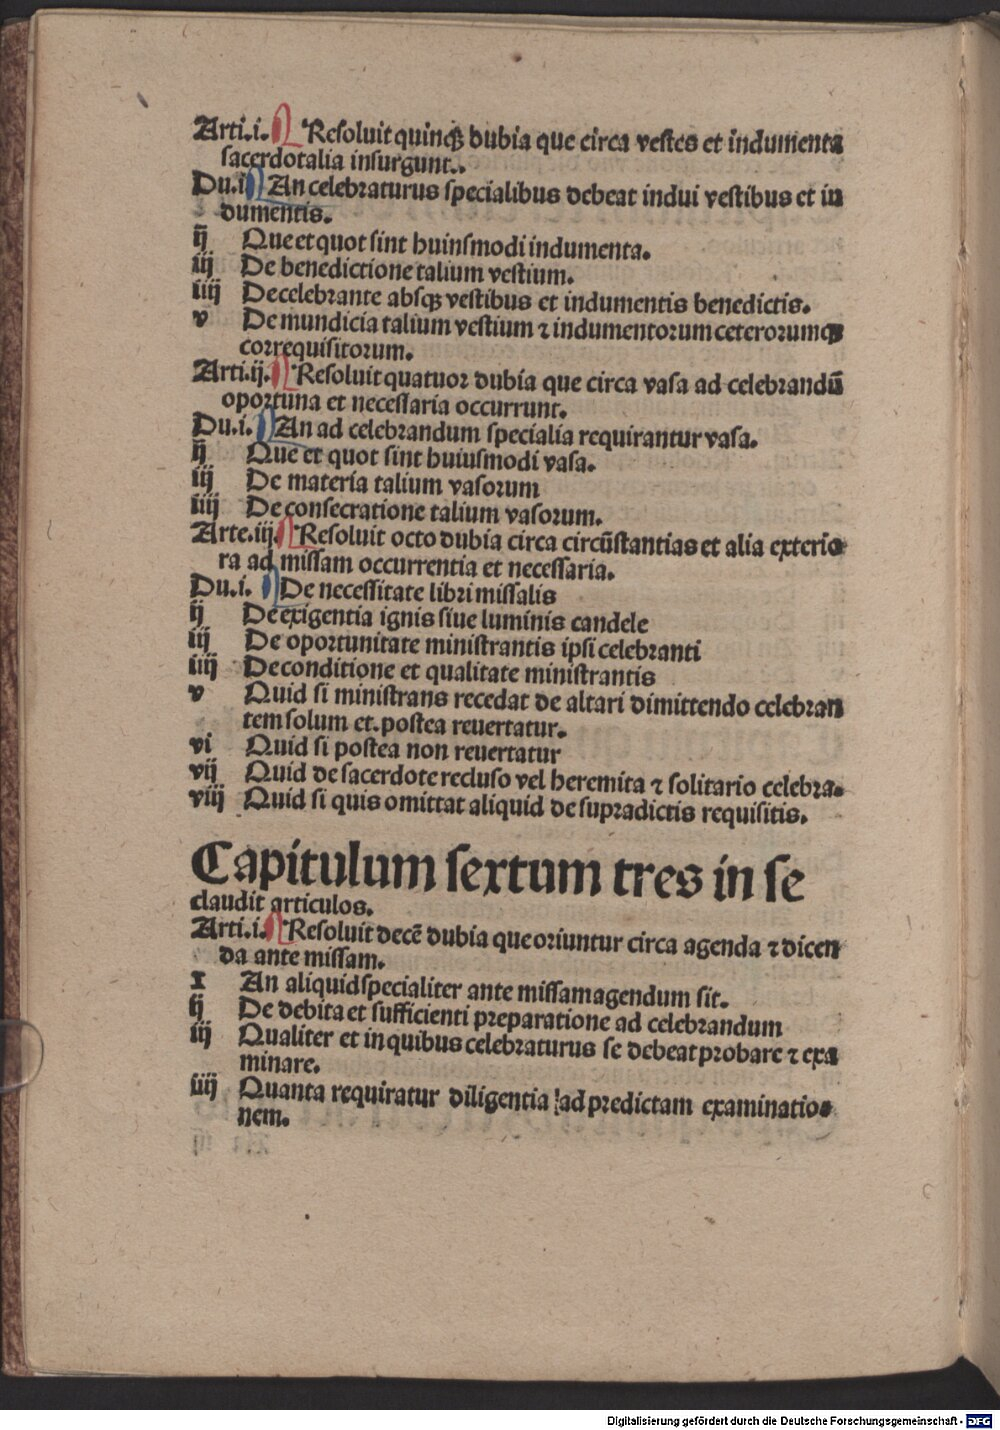 Arti.i. Resoluit quinqꝫ dubia que circa vestes et indumenta
sacerdotalia insurgunt..
Du.i An celebraturus specialibus debeat indui vestibus et in
dumentis.
ij Que et quot sint huinsmodi indumenta.
iij De benedictione talium vestium.
iiij De celebrante absqꝫ vestibus et indumentis benedictis.
v De mundicia talium vestium ⁊ indumentorum ceterorumqꝫ
correquisitorum.
Arti.ij. Resoluit quatuor dubia que circa vasa ad celebrandū
oportuna et necessaria occurrunt.
Du.i. An ad celebrandum specialia requirantur vasa.
ij Que et quot sint huiusmodi vasa.
iij De materia talium vasorum
iiij De consecratione talium vasorum.
Arte.iij. Resoluit octo dubia circa circūstantias et alia exterio-
ra ad missam occurrentia et necessaria.
Du.i. De necessitate libri missalis
ij De exigentia ignis siue luminis candele
iij De oportunitate ministrantis ipsi celebranti
iiij De conditione et qualitate ministrantis
v Quid si ministrans recedat de altari dimittendo celebran
tem solum et.postea reuertatur.
vi Quid si postea non reuertatur
vij Quid de sacerdote recluso vel heremita ⁊ solitario celebra-
viij Quid si quis omittat aliquid de supradictis requisitis.
Capitulum sextum tres in se
claudit articulos.
Arti.i. Resoluit decē dubia que oriuntur circa agenda ⁊ dicen
da ante missam.
I An aliquid specialiter ante missam agendum sit.
ij De debita et sufficienti preparatione ad celebrandum
iij Qualiter et in quibus celebraturus se debeat probare ⁊ exa
minare.
iiij Quanta requiratur diligentia ad predictam examinatio-
nem.
Digitalisierung gefördert durch die Deutsche Forschungsgemeinschaft - DFG